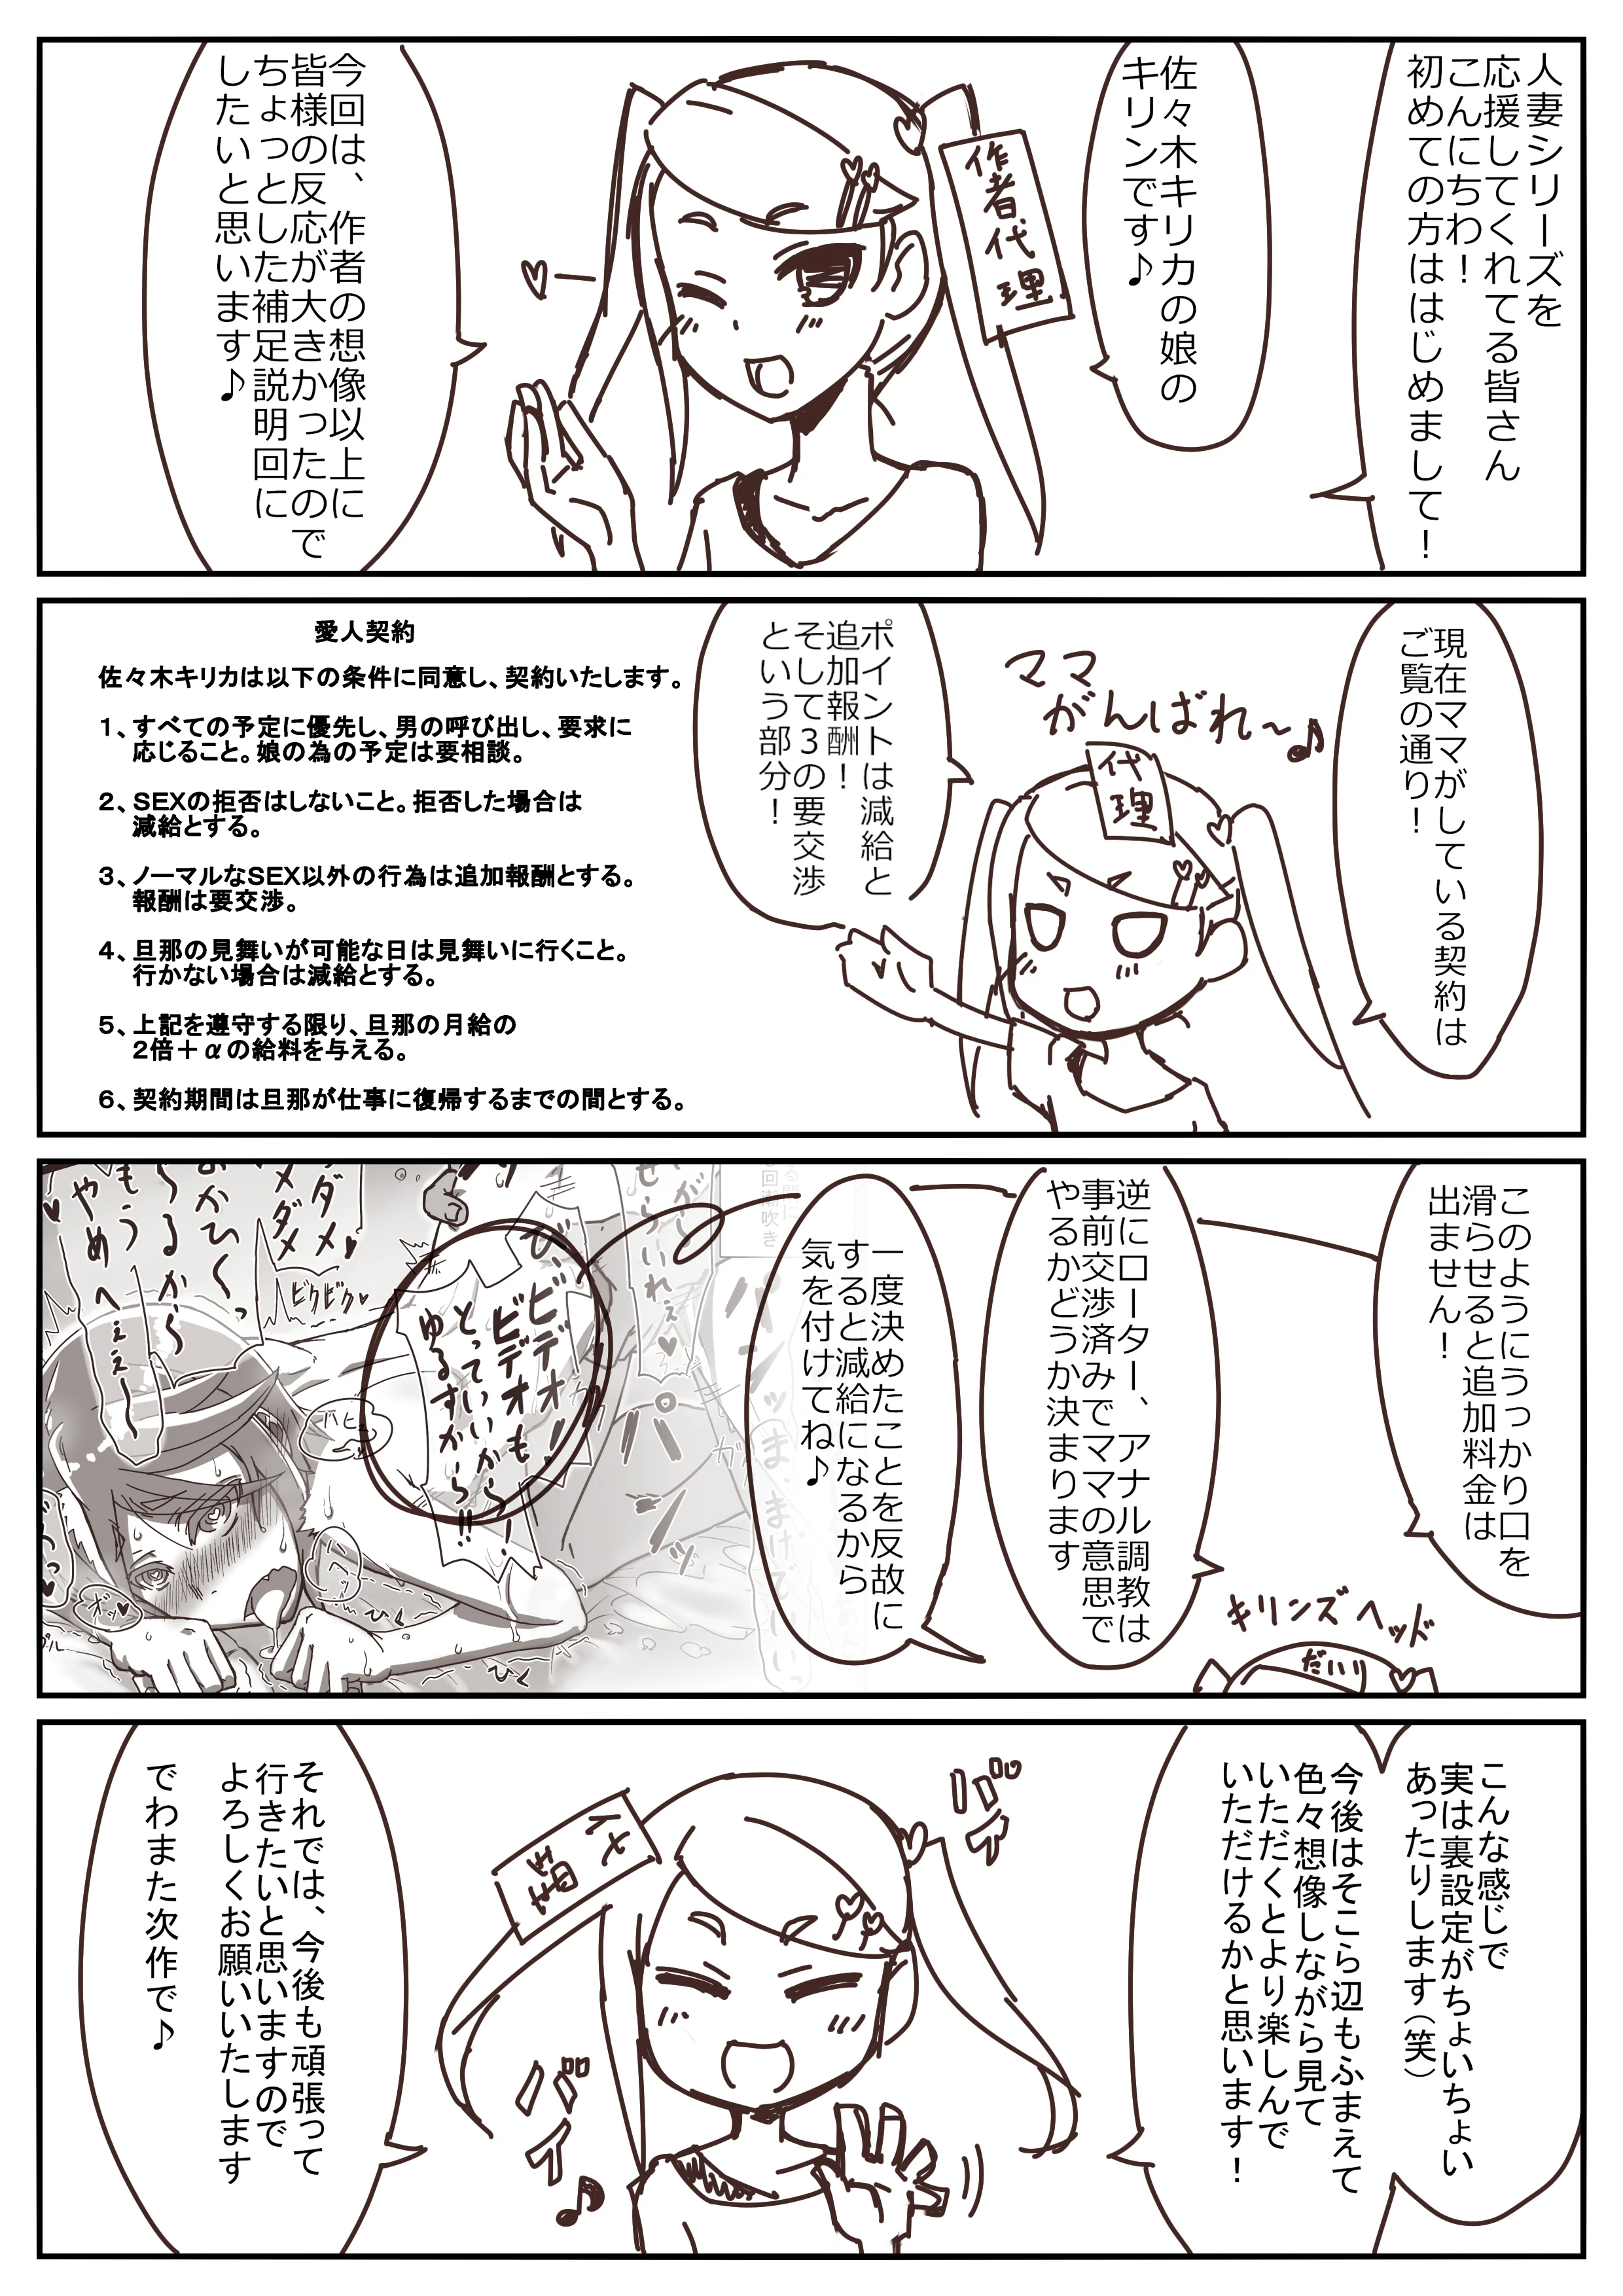 人妻シリーズを
応援してくれてる皆さん
こんにちわ！
初めての方ははじめまして！
佐々木キリカの娘の
キリンです♪
作者代理
今回は、作者の想像以上に
皆様の反応が大きかったので
ちょっとした補足説明回に
したいと思います♪
現在ママがしている契約は
ご覧の通り！
ママ
がんばれ～♪
代理
ポイントは減給と
追加報酬！
そして３の要交渉
という部分！
愛人契約
佐々木キリカは以下の条件に同意し、契約いたします。
１、すべての予定に優先し、男の呼び出し、要求に
応じること。娘の為の予定は要相談。
２、ＳＥＸの拒否はしないこと。拒否した場合は
減給とする。
３、ノーマルなＳＥＸ以外の行為は追加報酬とする。
報酬は要交渉。
４、旦那の見舞いが可能な日は見舞いに行くこと。
行かない場合は減給とする。
５、上記を遵守する限り、旦那の月給の
２倍＋αの給料を与える。
６、契約期間は旦那が仕事に復帰するまでの間とする。
このようにうっかり口を
滑らせると追加料金は
出ません！
逆にローター、アナル調教は
事前交渉済みでママの意思で
やるかどうか決まります
一度決めたことを反故に
すると減給になるから
気を付けてね♪
キリンズヘッド
だいり
回潮吹き
び、ビデオ！
ビデオも
とっていいから！
ゆるすから！！
ダメ♥
ダメダメ
ビクビク♥
もう
やめへぇぇ～
ひく
ひく
こんな感じで
実は裏設定がちょいちょい
あったりします（笑）
今後はそこら辺もふまえて
色々想像しながら見て
いただくとより楽しんで
いただけるかと思います！
バイ
バイ♪
それでは、今後も頑張って
行きたいと思いますので
よろしくお願いいたします
でわまた次作で♪